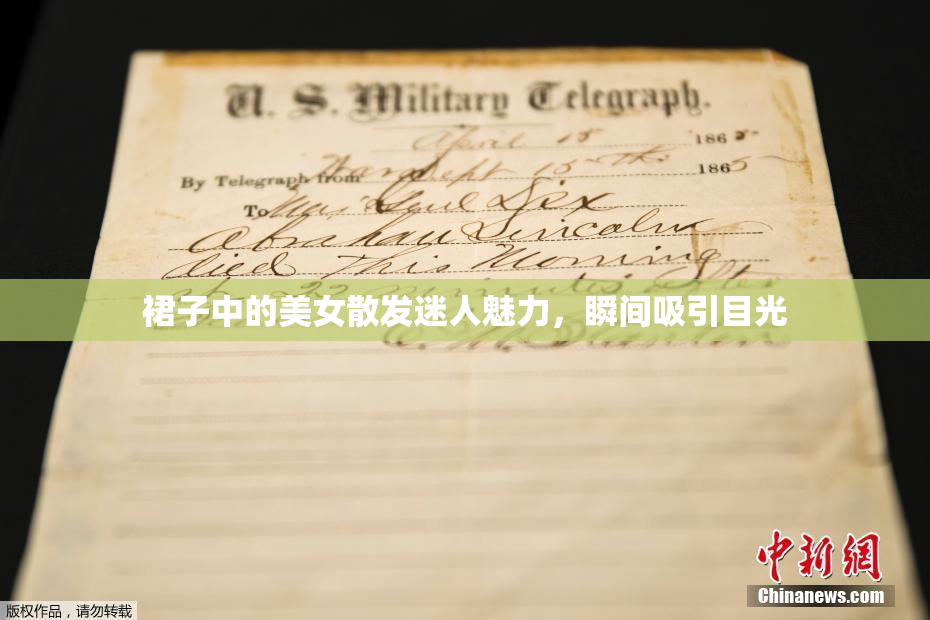 U. S. Military Telegraph.
April 15 1865
By Telegraph from War Dept 15th 1865
To Maj Genl Dix
Abraham Lincoln
died This Morning
at 22 minutes after
裙子中的美女散发迷人魅力，瞬间吸引目光
E. M. Stanton
中新网
Chinanews.com
版权作品，请勿转载